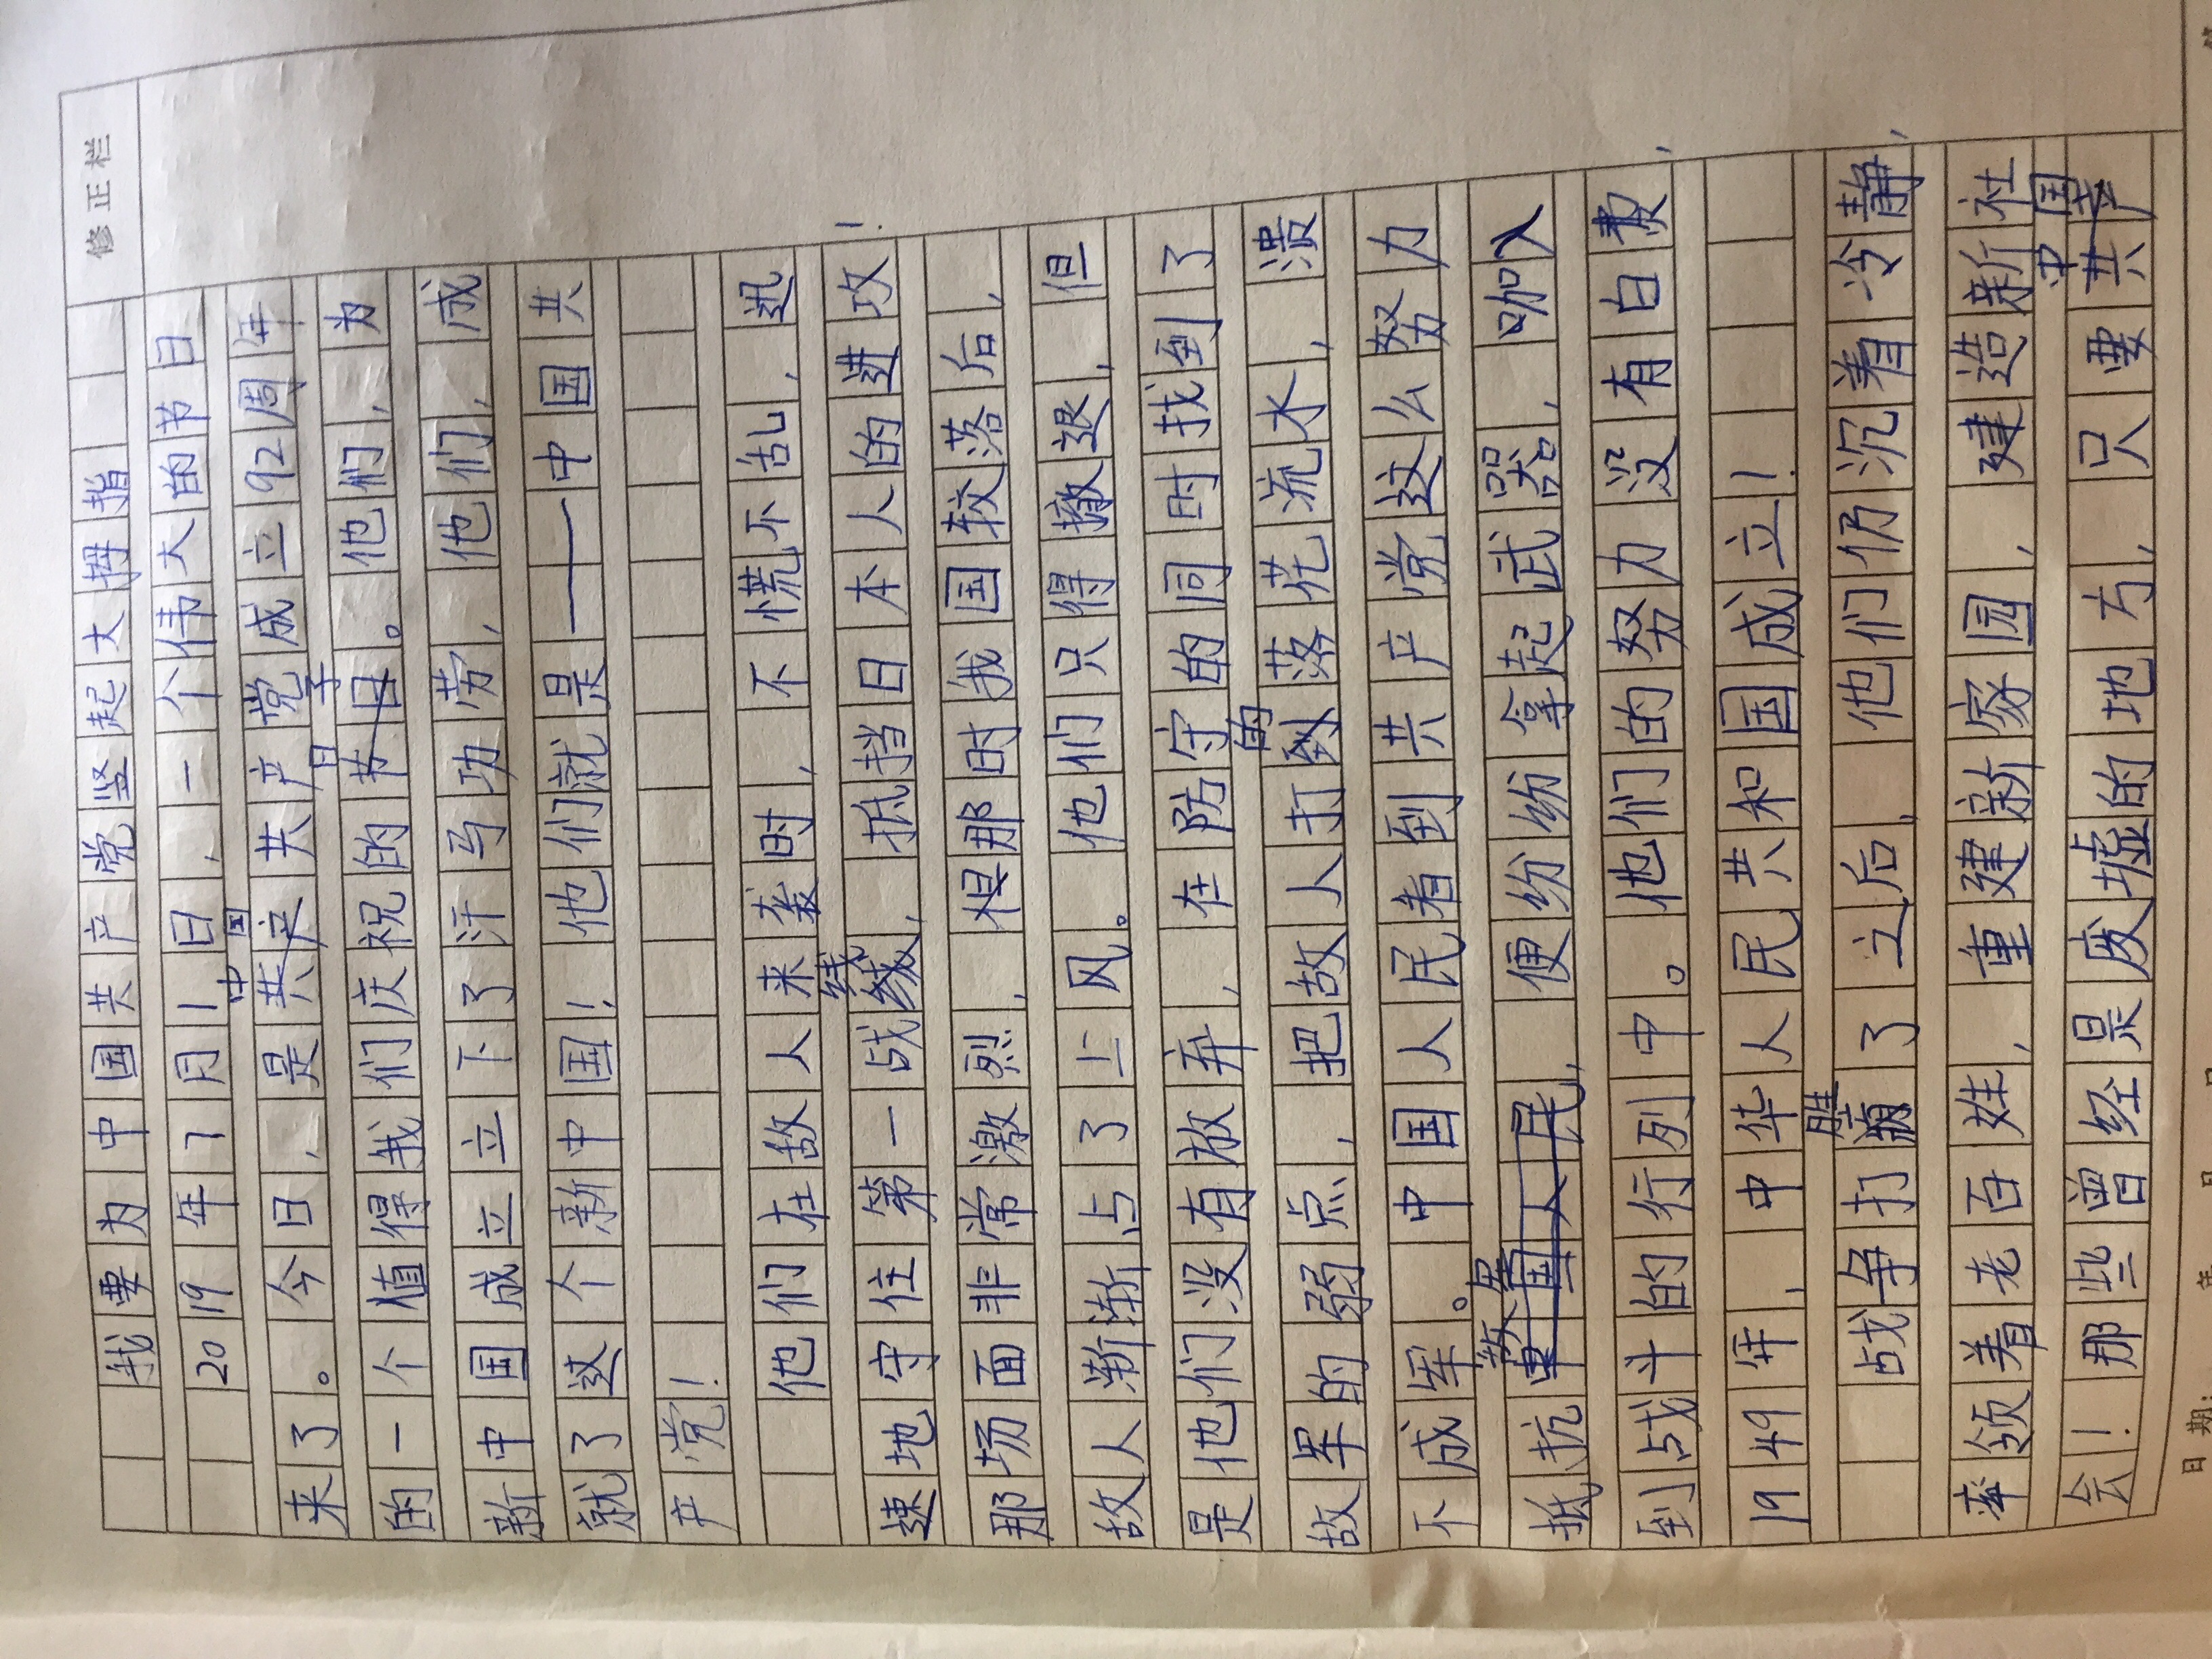 修正栏
我要为中国共产党竖起大拇指
2019年7月1日，一个伟大的节日
来了。今日，是中国共产党成立92周年
的一个值得我们庆祝的日子。他们，为
新中国成立立下了汗马功劳，他们，成
就了这个新中国！他们就是——中国共
产党！
他们在敌人来袭时，不慌不乱，迅
速地守住第一战线，抵挡日本人的进攻！
那场面非常激烈，但那时我国较落后，
敌人渐渐占了上风。他们只得撤退，但
是他们没有放弃，在防守的同时找到了
敌军的弱点，把敌人打的落花流水，溃
不成军。中国人民看到共产党这么努力
抵抗敌军，便纷纷拿起武器，加入
到战斗的行列中。他们的努力没有白费，
1949年，中华人民共和国成立！
战争打胜了之后，他们仍沉着冷静，
率领着老百姓，重建新家园，建造新社
会！那些曾经是废墟的地方，只要中国共
日期： 年 月 日